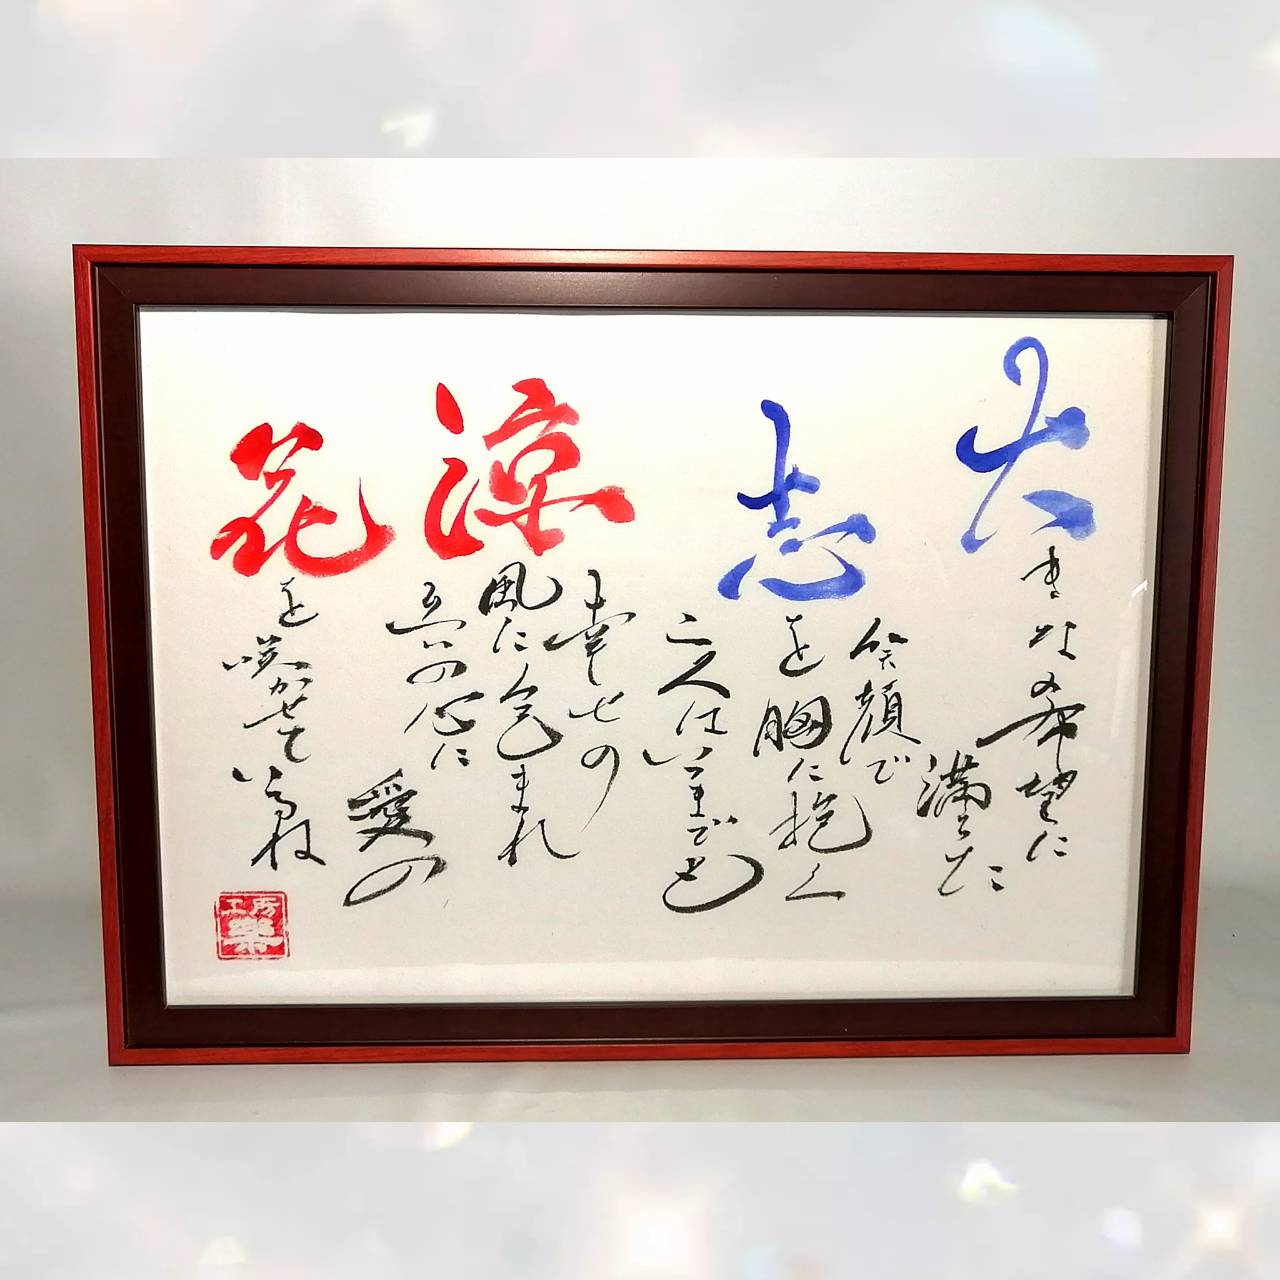 大きな希望に
満ちた
笑顔で
志を胸に抱く
二人はいつまでも
幸せの
涼風に包まれ
互いの心に
愛の
花を咲かせているね
工房
樂